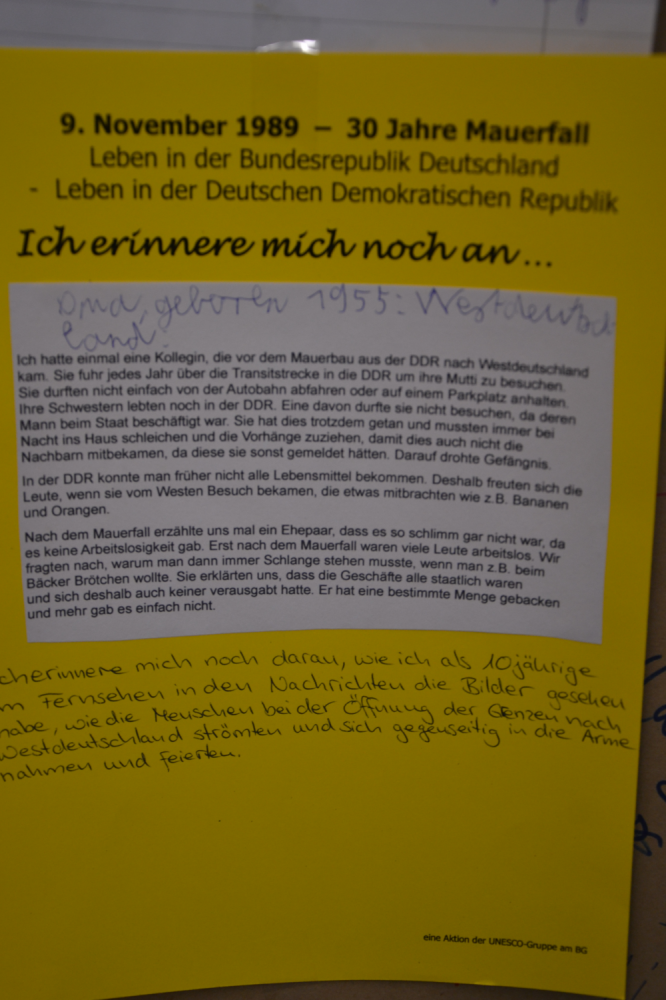 9. November 1989 – 30 Jahre Mauerfall
Leben in der Bundesrepublik Deutschland
- Leben in der Deutschen Demokratischen Republik
Ich erinnere mich noch an...
Oma, geboren 1955: Westdeutsch
land.
Ich hatte einmal eine Kollegin, die vor dem Mauerbau aus der DDR nach Westdeutschland
kam. Sie fuhr jedes Jahr über die Transitstrecke in die DDR um ihre Mutti zu besuchen.
Sie durften nicht einfach von der Autobahn abfahren oder auf einem Parkplatz anhalten.
Ihre Schwestern lebten noch in der DDR. Eine davon durfte sie nicht besuchen, da deren
Mann beim Staat beschäftigt war. Sie hat dies trotzdem getan und mussten immer bei
Nacht ins Haus schleichen und die Vorhänge zuziehen, damit dies auch nicht die
Nachbarn mitbekamen, da diese sie sonst gemeldet hätten. Darauf drohte Gefängnis.
In der DDR konnte man früher nicht alle Lebensmittel bekommen. Deshalb freuten sich die
Leute, wenn sie vom Westen Besuch bekamen, die etwas mitbrachten wie z.B. Bananen
und Orangen.
Nach dem Mauerfall erzählte uns mal ein Ehepaar, dass es so schlimm gar nicht war, da
es keine Arbeitslosigkeit gab. Erst nach dem Mauerfall waren viele Leute arbeitslos. Wir
fragten nach, warum man dann immer Schlange stehen musste, wenn man z.B. beim
Bäcker Brötchen wollte. Sie erklärten uns, dass die Geschäfte alle staatlich waren
und sich deshalb auch keiner verausgabt hatte. Er hat eine bestimmte Menge gebacken
und mehr gab es einfach nicht.
ch erinnere mich noch daran, wie ich als 10jährige
m Fernsehen in den Nachrichten die Bilder gesehen
habe, wie die Menschen bei der Öffnung der Genzen nach
Westdeutschland strömten und sich gegenseitig in die Arme
nahmen und feierten.
eine Aktion der UNESCO-Gruppe am BG